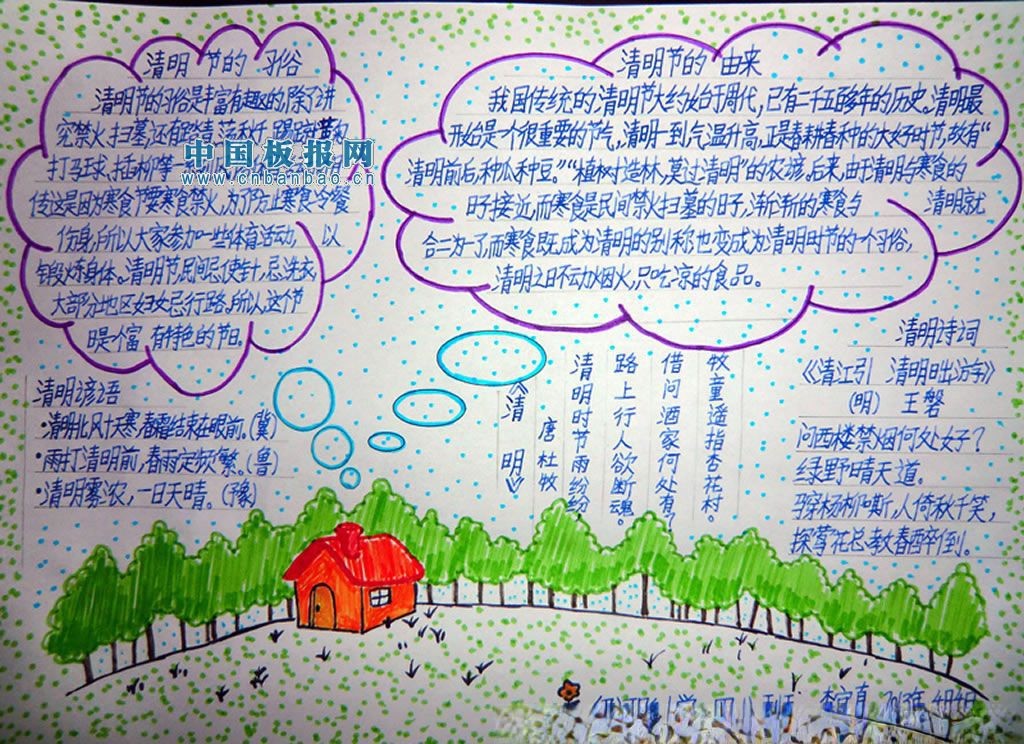 清明节的习俗
清明节的习俗是丰富有趣的,除了讲
究禁火扫墓,还有踏青、荡秋千、踢蹴
打马球、插柳等一
传这是因为寒食节要寒食禁火,为了防止寒食冷餐
伤身,所以大家参加一些体育活动, 以
锻炼身体。清明节,民间忌使针,忌洗衣,
大部分地区妇女忌行路,所以,这个节
日是个富有特色的节日.
中国板报网
www.cnbanbao.cn
清明节的由来
我国传统的清明节大约始于周代,已有二千五百多年的历史。清明最
开始是一个很重要的节气,清明一到气温升高,正是春耕春种的大好时节,故有“
清明前后,种瓜种豆。”“植树造林,莫过清明”的农谚。后来,由于清明与寒食的
日子接近,而寒食是民间禁火扫墓的日子,渐渐的寒食与 清明就
合二为一了,而寒食既成为清明的别称,也变成为清明时节的一个习俗,
清明之日不动烟火,只吃凉的食品。
清明谚语
·清明北风十天寒,春霜结束在眼前。(冀)
·雨打清明前,春雨定频繁。(鲁)
·清明雾浓,一日天晴。(豫)
《清明》
唐 杜牧
清明时节雨纷纷
路上行人欲断魂。
借问酒家何处有?
牧童遥指杏花村。
清明诗词
《清江引 清明日出游》
(明) 王磐
问西楼禁烟何处好?
绿野晴天道。
马穿杨柳嘶,人倚秋千笑,
探莺花总教春醉倒。